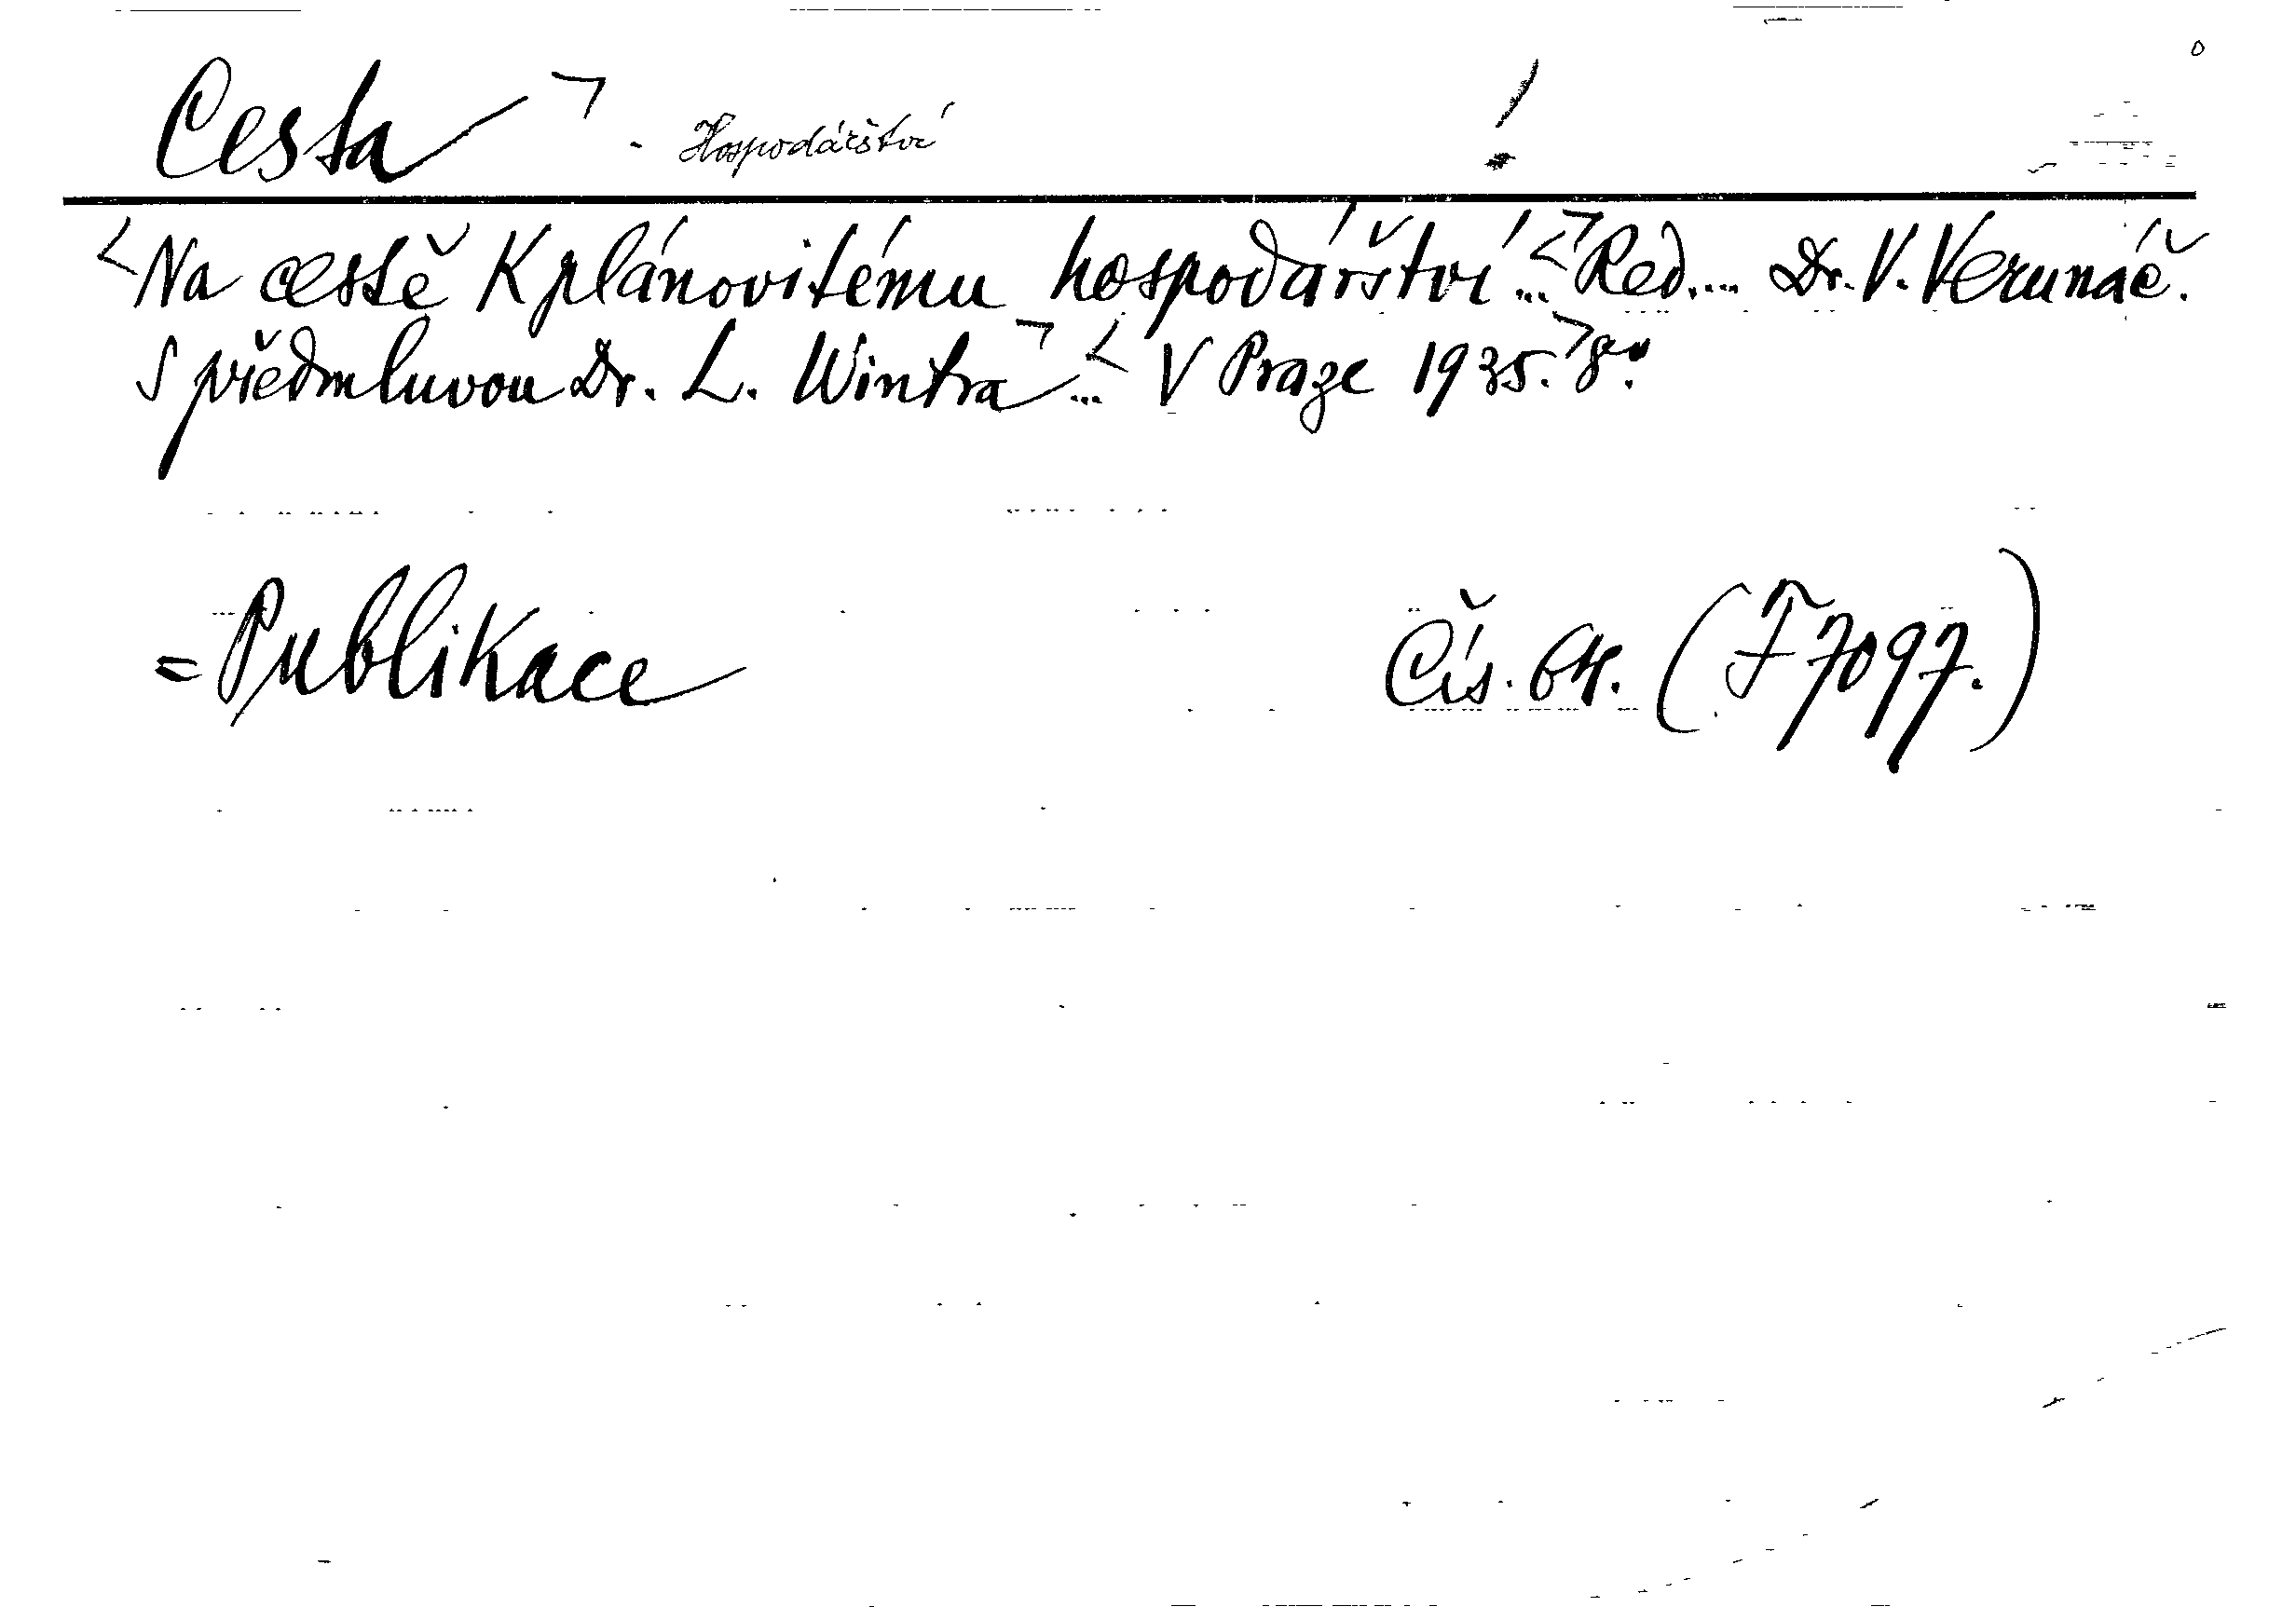 Cesta ⌝ . Hospodářství !
<Na cestě k plánovitému hospodářství ...⌝ <Red.... Dr. V. Verunáč.
S předmluvou Dr. L. Wintra⌝... <V Praze 1935.⌝ 8°.
= Publikace Čís. 64. (F 7097.)